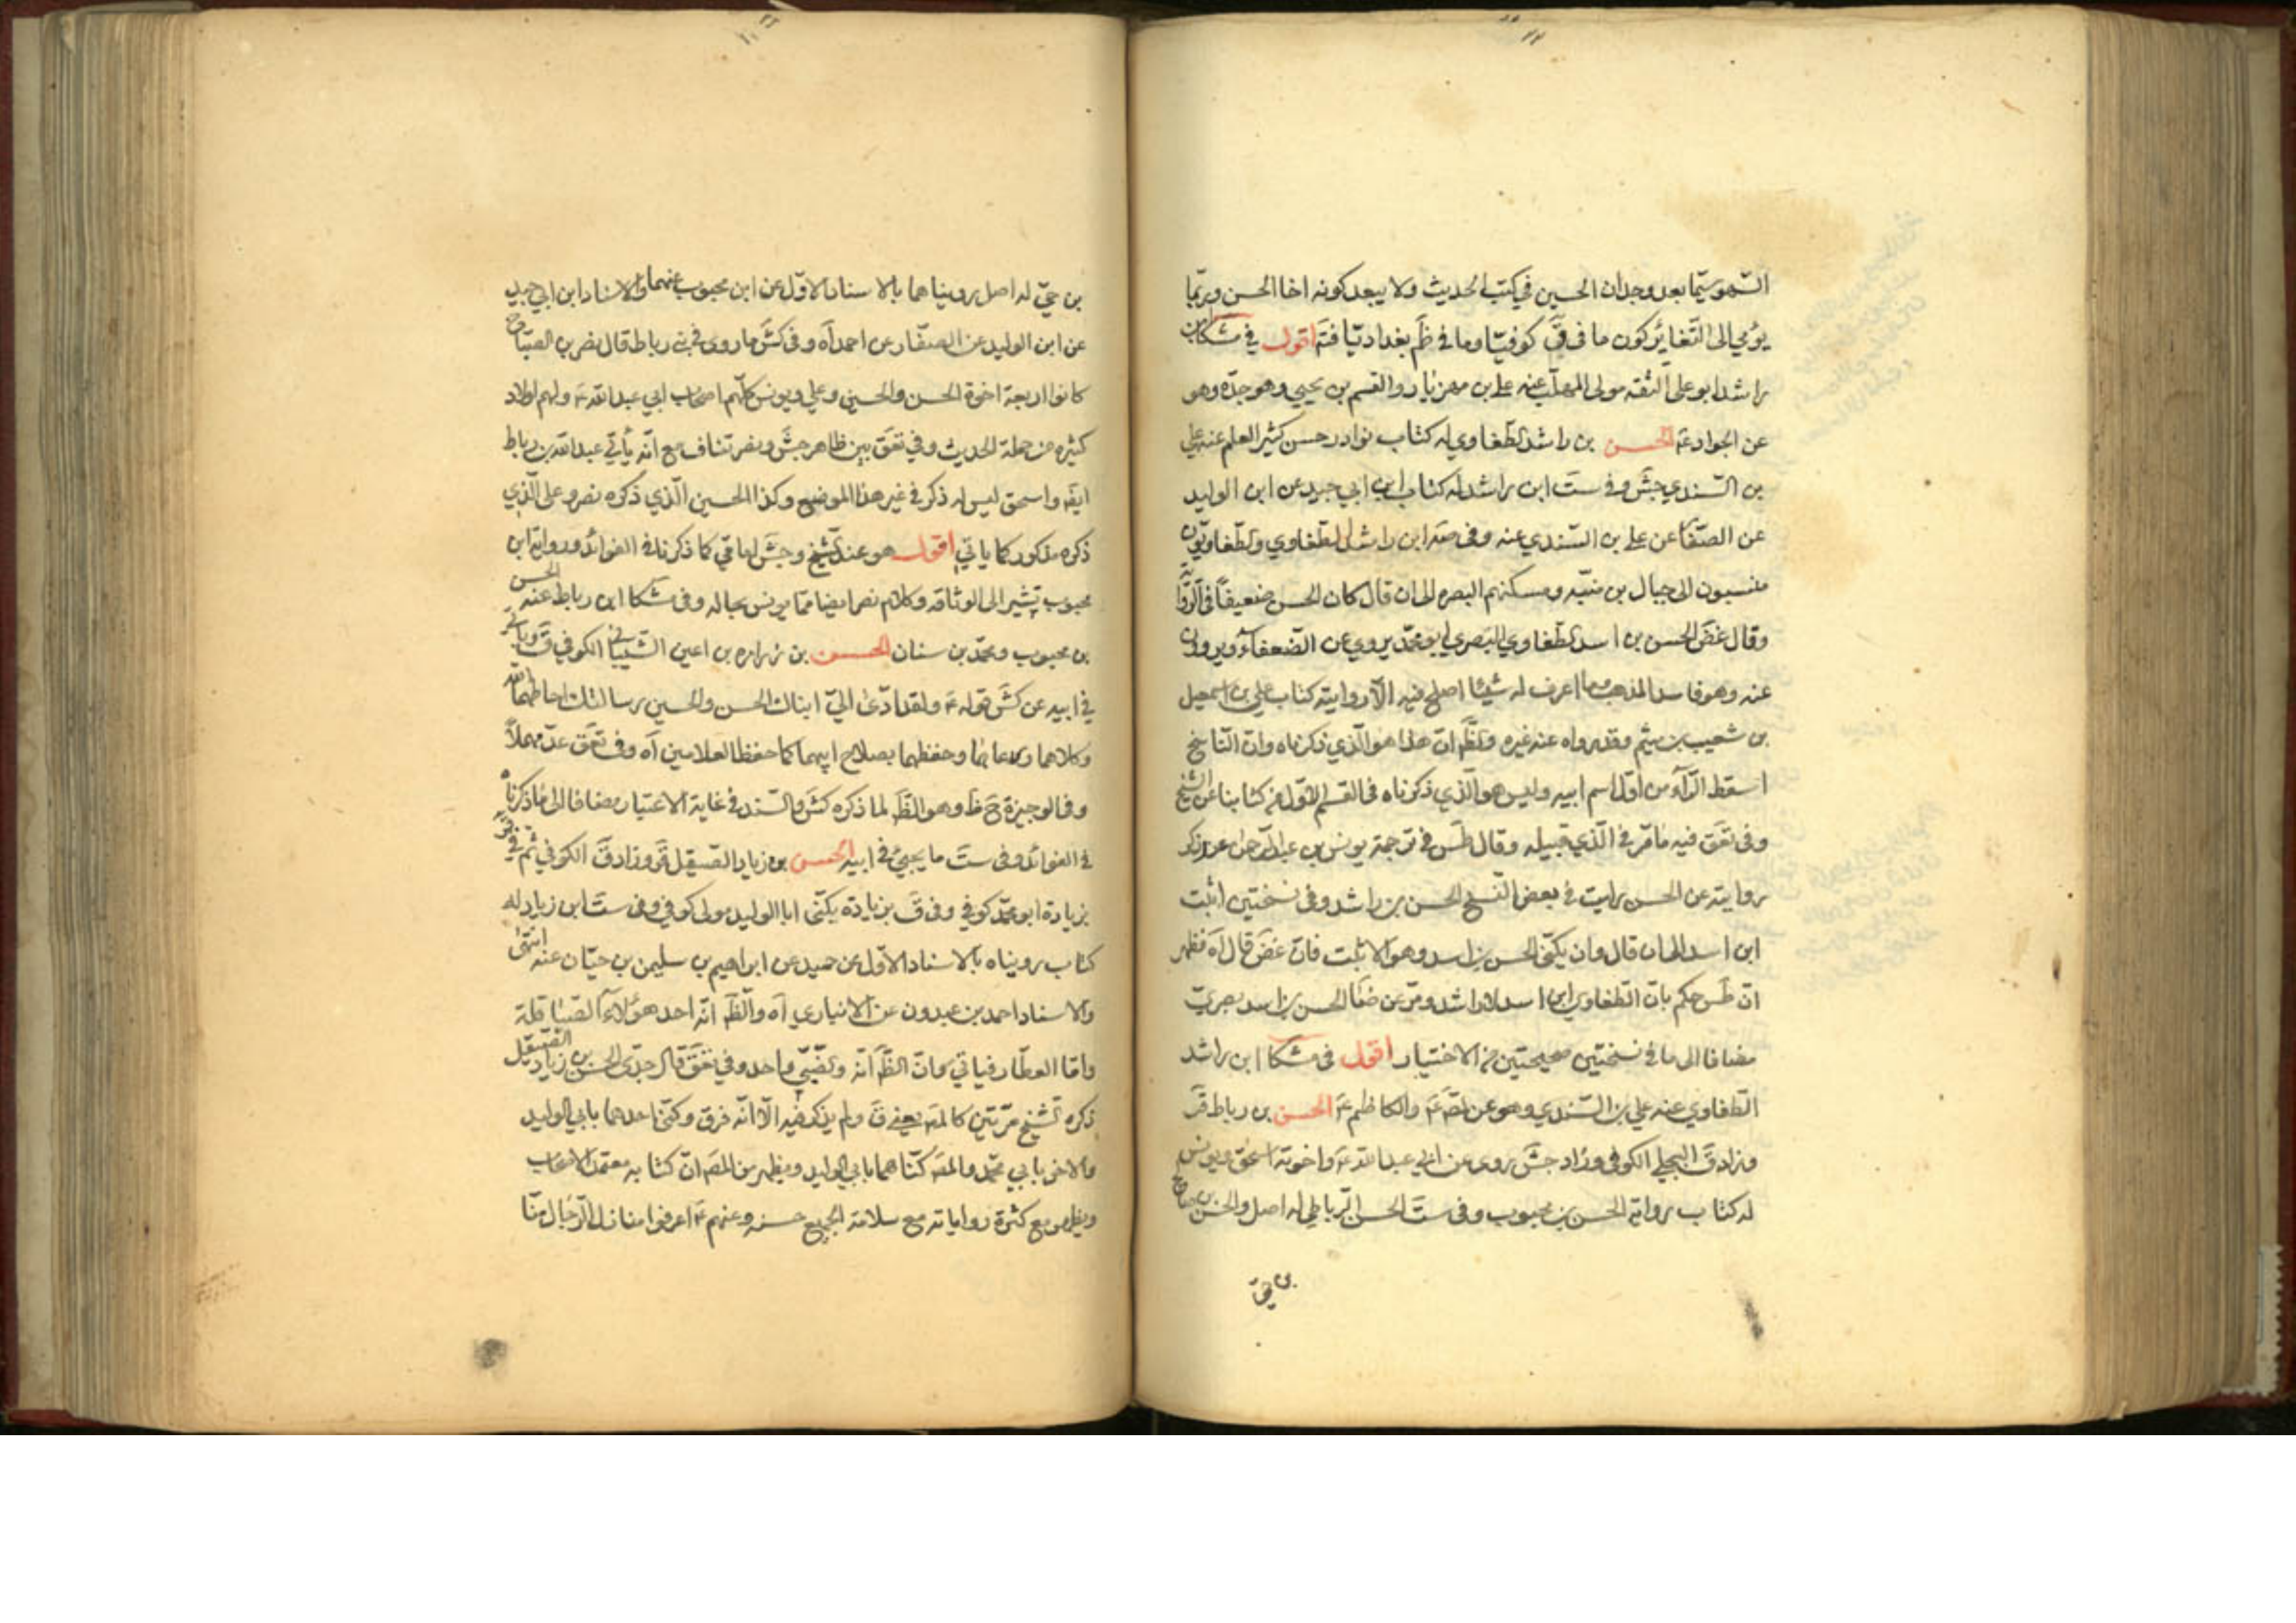 السهو سيّما بعد وجدان الحسين في كتب الحديث ولا يبعد كونه اخا الحسن وربّما
يؤمي الى التّغاير كون ما في قَ كوفيّا وما في ظَم بغداديّا فتَه اقول في مشكا ابن
راشد ابو علي الثقه مولى المهلّب عنه علي بن مهزيار والقسم بن يحيي وهو جدّه وهو
عن الجواد عَه الحسن بن راشد الطّغاوي له كتاب نوادر حسن كثير العلم عنه علي
بن السّندي جَش وفي سَت ابن راشد له كتاب ابن ابي جيد عن ابن الوليد
عن الصفّار عن علي بن السّندي عنه وفي صَه ابن راشد الطّغاوي والطّغاويّون
منسبون الى جبال بن منبّه ومسكنهم البصره الى ان قال كان الحسن ضعيفاً في الرّوا
وقال غَض الحسن بن اسد الطّغاوي البصري ابو محمّد يروي عن الضّعفاء ويروون
عنه وهو فاسد المذهب وما اعرف له شيئا اصلح فيه الّا روايته كتاب علي بن اسمعيل
بن شعيب بن ميثم وقد رواه عنه غيره والظَّم انّ هذا هو الّذي ذكرناه وانّ النّاسخ
اسقط الرّاء من اوّل اسم ابيه وليس هو الّذي ذكرناه في القسم الاوّل من كتابنا عن الشيخ
وفي تعَق فيه ما مرّ في الّذي قبيله وقال طَس في ترجمة يونس بن عبد الرّحمن عند ذكر
روايته عن الحسن رايت في بعض النّسخ الحسن بن راشد وفي نسختين اثبت
ابن اسد الى ان قال وان يكنّى الحسن بن اسد وهو الاثبت فانّ غَض قال اَه فظهر
انّ طَس حكم بانّ الطّغاوي ابن اسد لا راشد ومرّ عن ضَا الحسن بن اسد بصريّ
مضافا الى ما في نسختين صحيحتين من الاختيار اقول في مشكا ابن راشد
الطّغاوي عنه علي بن السّندي وهو عن الصَّ عَه والكاظم عَه الحسن بن رباط قَر
وزاد قَ البجلي الكوفي وزاد جَش روى عن ابي عبد الله عَه واخوته اسحق ويونس
له كتاب رواية الحسن بن محبوب وفي سَت الحسن الرّباطي له اصل والحسن بن صالح
بن حيّ
بن حيّ له اصل رويناهما بالاسناد الاوّل عن ابن محبوب عنهما والاسناد ابن ابي جيد
عن ابن الوليد عن الصفّار عن احمد اَه وفي كَش ما روى في بني رباط قال نصر بن الصبّاح
كانوا اربعة اخوة الحسن والحسين وعلي ويونس كلّهم اصحاب ابي عبد الله عَه ولهم اولاد
كثيره من حملة الحديث وفي تعَق بين ظاهر جَش ونصر تناف مع انّه يأتي عبد الله بن رباط
ايضَه واسحق ليس له ذكر في غير هذا الموضع وكذا الحسين الّذي ذكره نصر وعلى الّذي
ذكره مذكور كما ياتي اقول هو عند الشّيخ وجَش امامّي كما ذكرنا في الفوائد ورواية ابن
محبوب تشير الى الوثاقه وكلام نصر ايضا ممّا يونس بحاله وفي مشكا ابن رباط عنه الحسن
بن محبوب ومحمّد بن سنان الحسن بن زراره بن اعين الشّيباني الكوفي قَ وياتي
في ابيه عن كَش قوله عَه ولقد ادّى اليّ ابناك الحسن والحسين رسالتك احاطهما الله
وكلاهما ورعاهما وحفظهما بصلاح ابيهما كما حفظ الغلامين اَه وفي تعَق عدّ مهملاً
وفي الوجيزة حَ ظَ وهو الظَّ لما ذكره كَش والسّند في غاية الاعتبار مضافا الى ما ذكرناه
في الفوائد وفي سَت ما يجيئ في ابيه الحسن بن زياد الصّيقل قَر وزاد قَ الكوفي ثم في
بزيادة ابو محمّد كوفي وفي قَ بزيادة يكنّى ابا الوليد مولى كوفي وفي سَت ابن زياد له
كتاب رويناه بالاسناد الاوّل عن حميد عن ابراهيم بن سليمن بن حيّان عنه انتهى
والاسناد احمد بن عبدون عن الانباري اَه والظَّ انّه احد هؤلاء الصّياقلة
وامّا العطّار فياتي وانّ الظَّ انّه والضّبّي واحد وفي تعَق قال جدّى الحسن بن زياد الصّيقل
ذكره الشّيخ مرّتين كالمصَ يعني قَ ولم يذكر فيه الّا انّه فرق وكنّى احدهما بابي الوليد
والاخر بابي محمّد والمصَ كنّاهما بابي الوليد ويظهر من المصَ انّ كتابه معتمد الاصحاب
ويظهر مع كثرة رواياته مع سلامة الجميع حسنه وعنهم عَه اعرفوا منازل الرّجال منّا